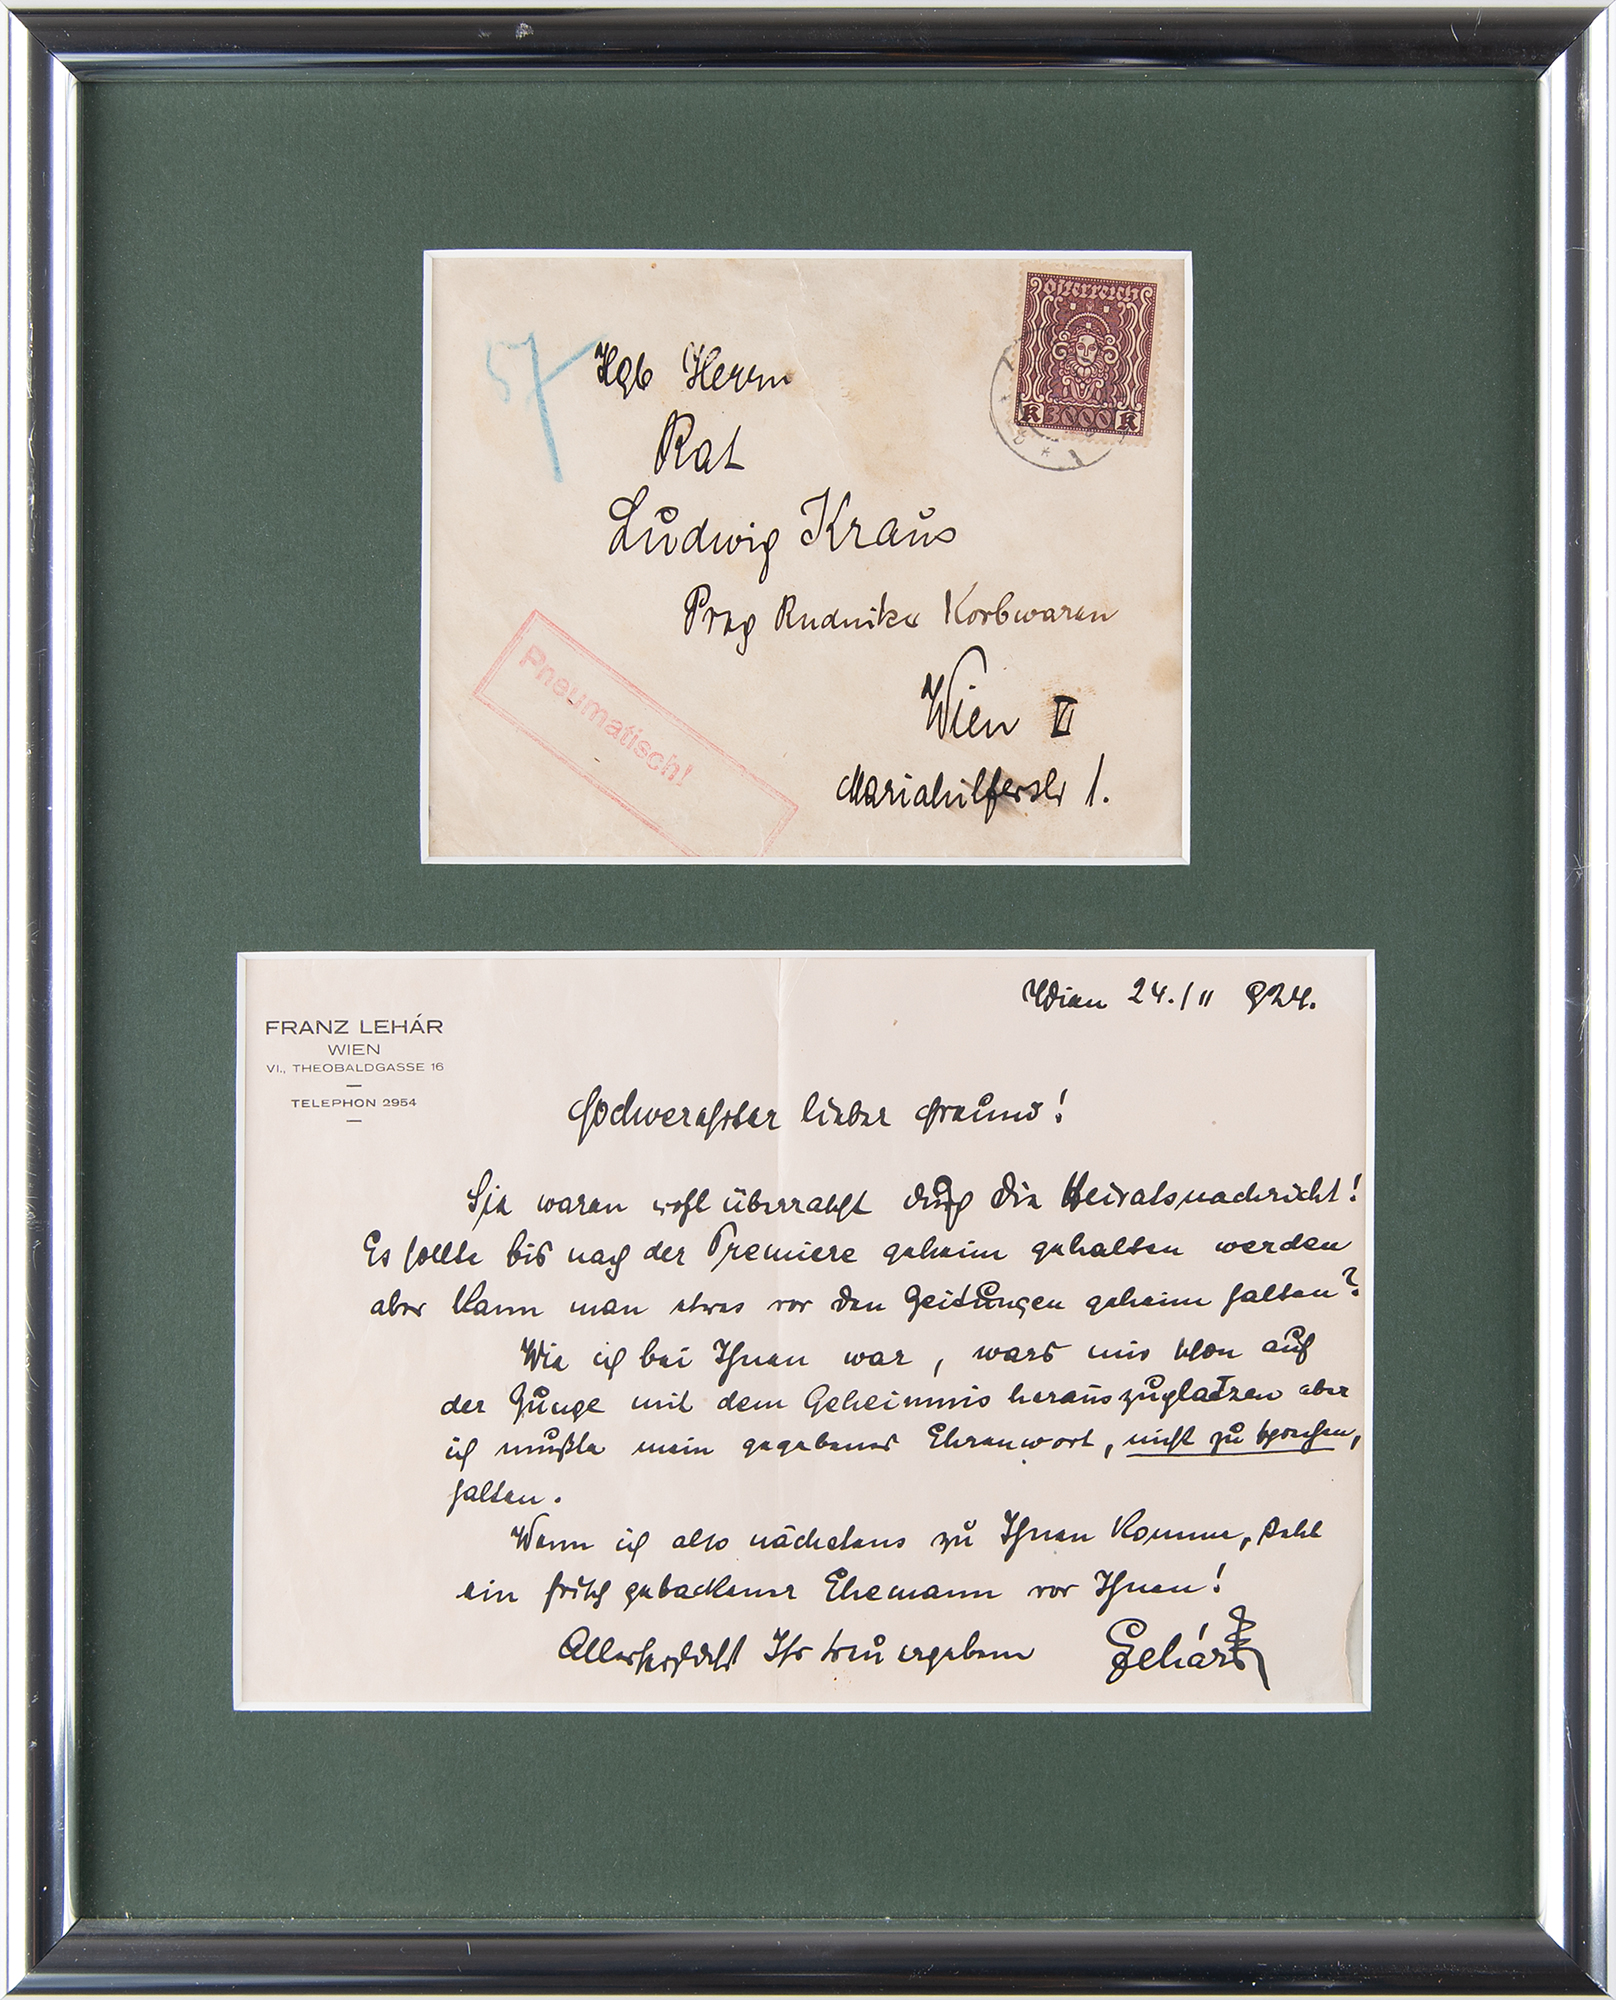 Hgb Herrn
Rat
Ludwig Kraus
Prag Rudniker Korbwaren
Wien VI
Mariahilferstr 1.
57
Pneumatisch!
Österreich
K 3000 K
FRANZ LEHÁR
WIEN
VI., THEOBALDGASSE 16
TELEPHON 2954
Wien 24./II 924.
Hochverehrter lieber Freund!
Sie waren wohl überrascht durch die Heiratsnachricht!
Es sollte bis nach der Premiere geheim gehalten werden
aber kann man etwas vor den Zeitungen geheim halten?
Wie ich bei Ihnen war, wars mir schon auf
der Zunge mit dem Geheimnis herauszuplatzen aber
ich mußte mein gegebenes Ehrenwort, nicht zu sprechen,
halten.
Wenn ich also nächstens zu Ihnen komme, steht
ein frisch gebackener Ehemann vor Ihnen!
Allerherzlichst Ihr treu ergebener Lehár